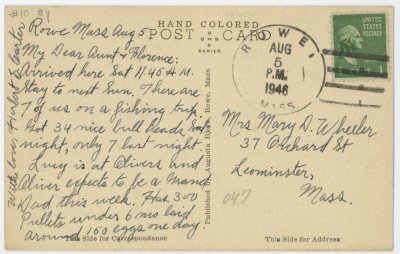 #10
HAND COLORED
POST CARD
Rowe Mass Aug 5
My Dear Aunt & Florence:
Arrived here Sat 11.45 A.M.
Stay to next Sun. There are
7 of us on a fishing trip.
Got 34 nice bull heads Sat
night, only 7 last night
Lucy is at Olivers and
Oliver expects to be a Grand
Dad this week. Has 300
Pullets under 6 mo laid
around 160 eggs one day
With love,
This Side for Correspondence
Published by Augusta Rowe, Mass.
ROWE
AUG
5
P.M.
1946
MASS.
UNITED STATES
POSTAGE
1
Mrs Mary D. Wheeler
37 Orchard St
Leominster,
Mass.
047
This Side for Address